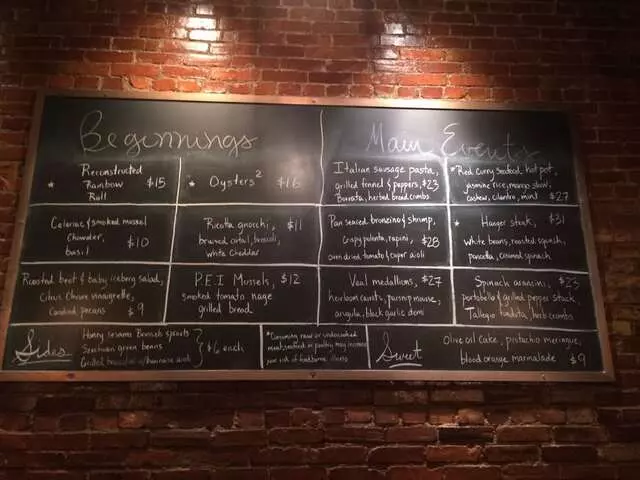 Beginnings
* Reconstructed
Rainbow
Roll $15
* Oysters² $16
Celeriac & smoked mussel
Chowder,
basil $10
Ricotta gnocchi, $11
braised oxtail, broccoli,
white cheddar
Roasted beet & baby iceberg salad,
Citrus Chevre vinaigrette,
Candied pecans $9
P.E.I Mussels, $12
smoked tomato nage
grilled bread
Main Events
Italian sausage pasta,
grilled fennel & peppers, $23
Burrata, herbed bread crumbs
* Red Curry Seafood, hot pot,
jasmine rice, mango slaw,
cashew, cilantro, mint $27
Pan seared bronzino & shrimp,
Crispy polenta, rapini, $28
oven dried tomato & caper aioli
* Hanger steak, $31
white beans, roasted squash,
pancetta, spinach
Veal medallions, $27
heirloom carrots, parsnip mousse,
arugula, black garlic demi
Spinach arancini, $23
portobello & grilled pepper stack,
Tallegio fonduta, herb crumbs
Sides
Honey sesame Brussels sprouts
Szechuan green beans
Grilled w/ aioli
} $6 each
* Consuming raw or undercooked
meat, seafood or poultry may increase
your risk of foodborne illness
Sweet
Olive oil Cake, pistachio meringue,
blood orange marmalade $9